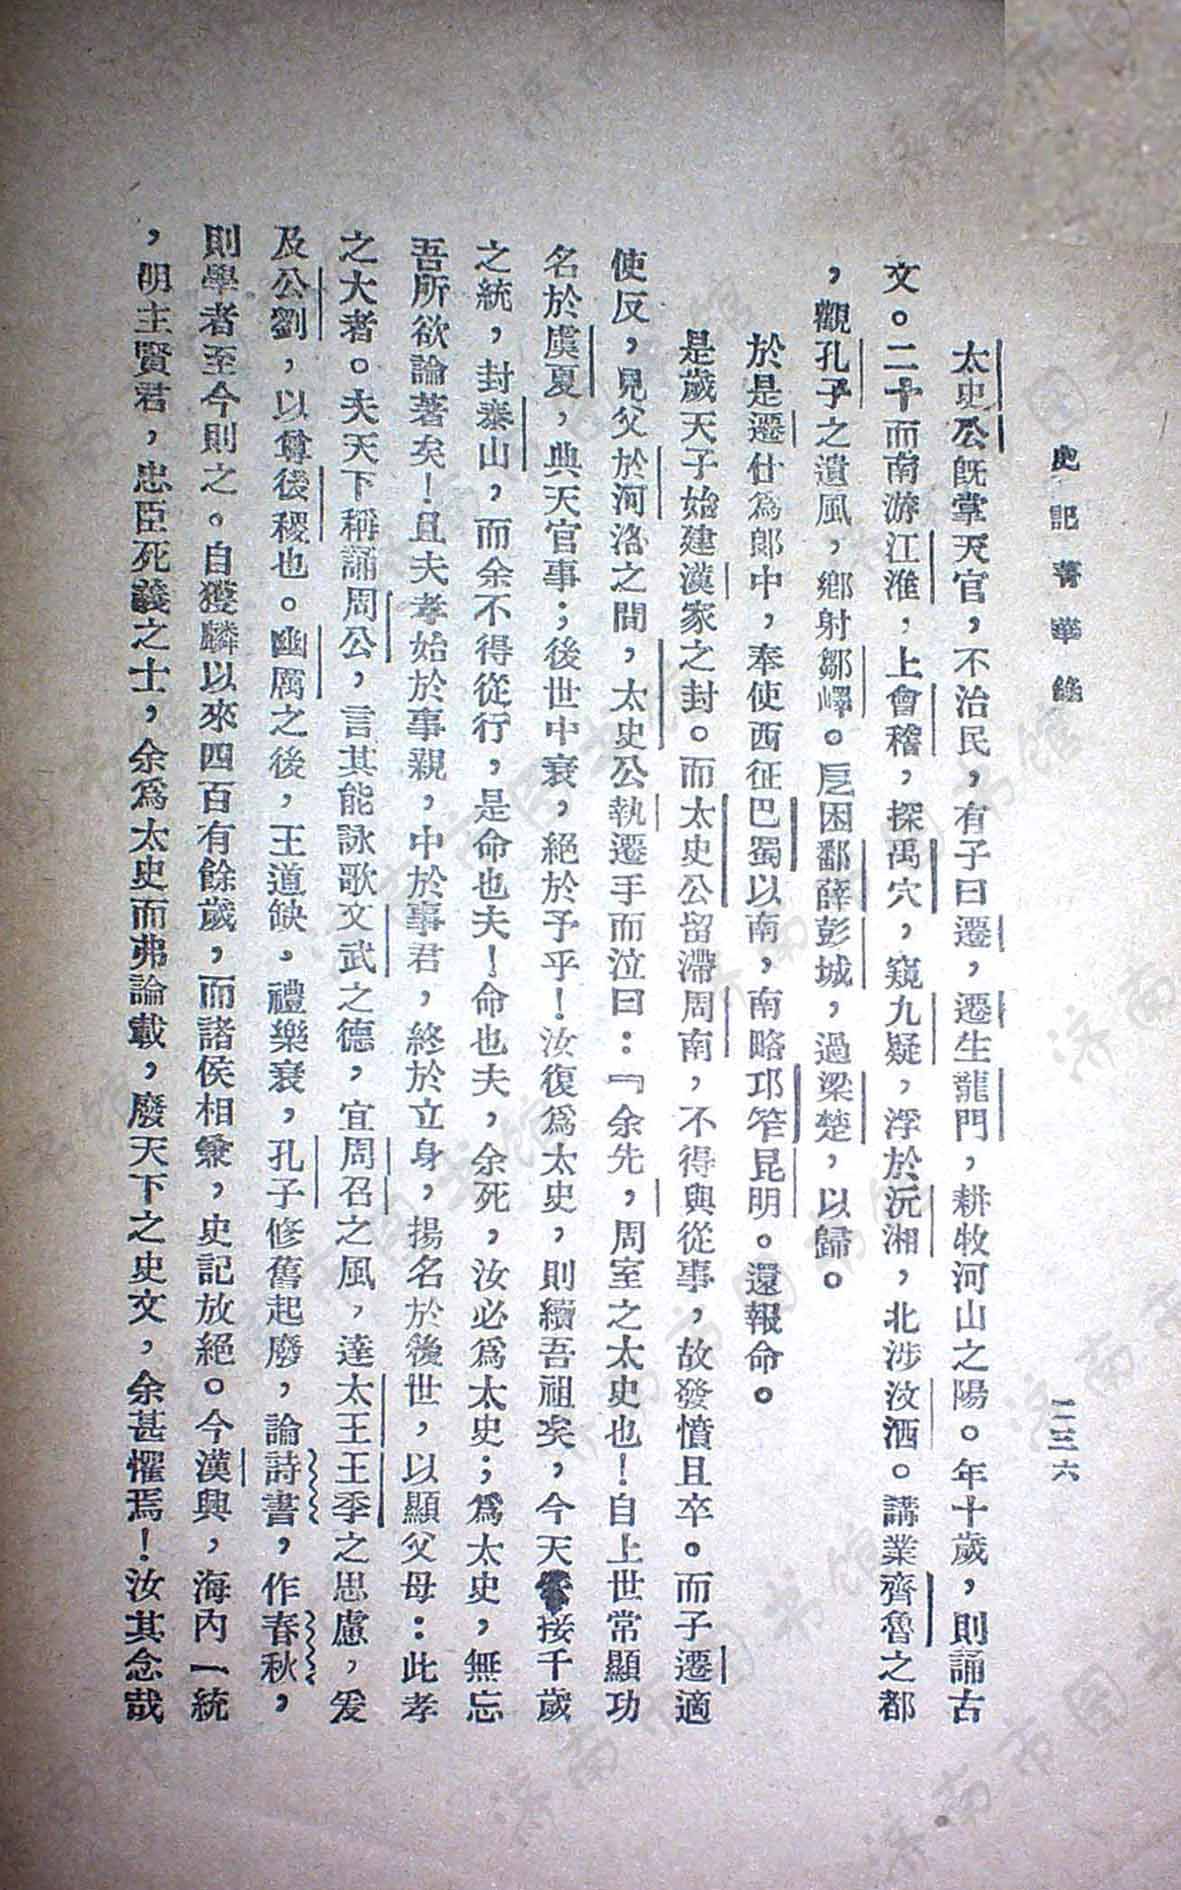 史記菁華錄
二三六
太史公既掌天官，不治民，有子曰遷，遷生龍門，耕牧河山之陽。年十歲，則誦古
文。二十而南游江淮，上會稽，探禹穴，窺九疑，浮於沅湘，北涉汶泗。講業齊魯之都
，觀孔子之遺風，鄉射鄒嶧。戹困鄱薛彭城，過梁楚，以歸。
於是遷仕爲郎中，奉使西征巴蜀以南，南略邛笮昆明。還報命。
是歲天子始建漢家之封。而太史公留滯周南，不得與從事，故發憤且卒。而子遷適
使反，見父於河洛之間，太史公執遷手而泣曰：『余先，周室之太史也！自上世常顯功
名於虞夏，典天官事；後世中衰，絕於予乎！汝復爲太史，則續吾祖矣，今天接千歲
之統，封泰山，而余不得從行，是命也夫！命也夫，余死，汝必爲太史；爲太史，無忘
吾所欲論著矣！且夫孝始於事親，中於事君，終於立身，揚名於後世，以顯父母：此孝
之大者。夫天下稱誦周公，言其能詠歌文武之德，宜周召之風，達太王王季之思慮，爰
及公劉，以尊後稷也。幽厲之後，王道缺，禮樂衰，孔子修舊起廢，論詩書，作春秋，
則學者至今則之。自獲麟以來四百有餘歲，而諸侯相兼，史記放絕。今漢興，海內一統
，明主賢君，忠臣死義之士，余爲太史而弗論載，廢天下之史文，余甚懼焉！汝其念哉